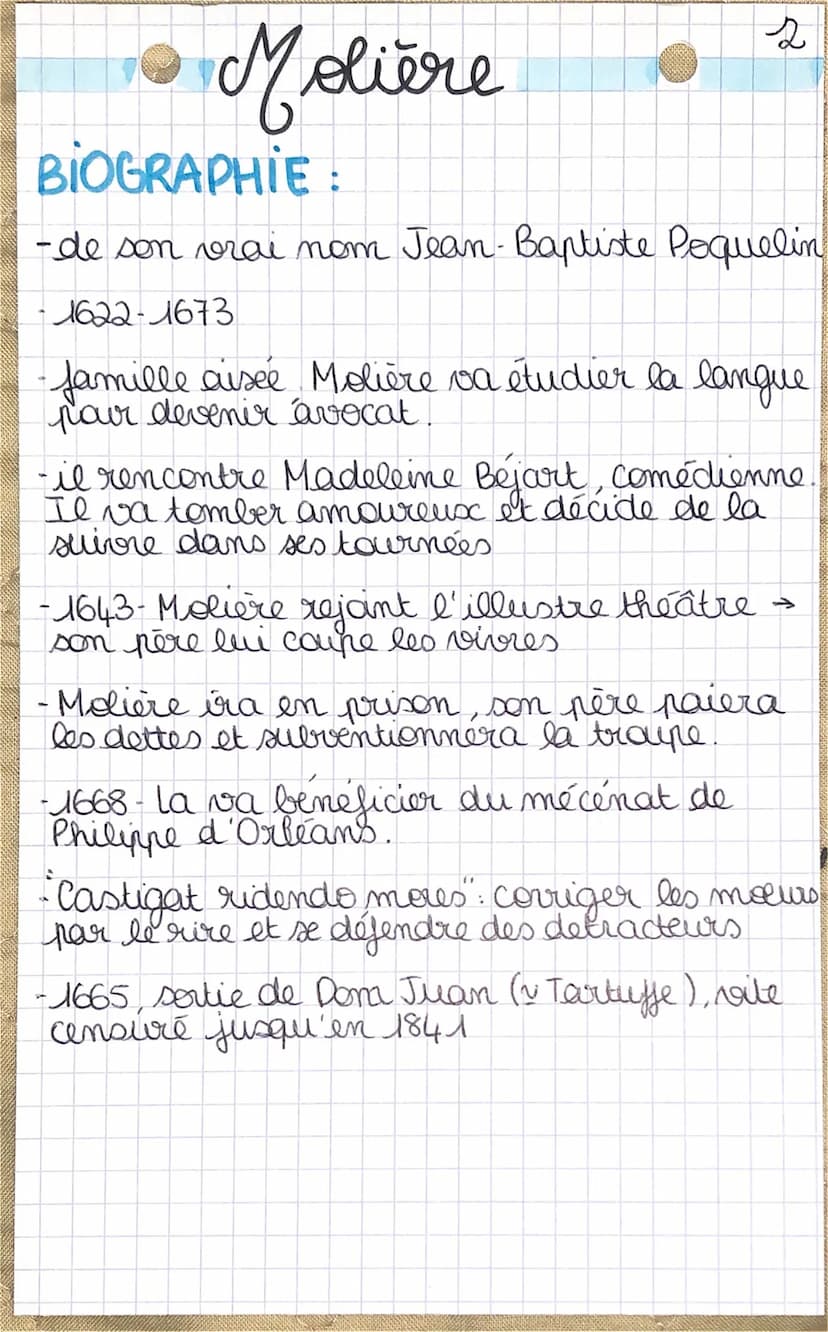 2
Molière
BIOGRAPHIE :
- de son vrai nom Jean-Baptiste Poquelin
- 1622-1673
- famille aisée. Molière va étudier la langue
pour devenir avocat.
- il rencontre Madeleine Béjart, comédienne.
Il va tomber amoureux et décide de la
suivre dans ses tournées
- 1643- Molière rejoint l'illustre théâtre →
son père lui coupe les vivres
- Molière ira en prison, son père paiera
les dettes et subventionnera la troupe.
- 1668- La va bénéficier du mécénat de
Philippe d'Orléans.
- "Castigat ridendo mores": corriger les moeurs
par le rire et se défendre des detracteurs
- 1665, sortie de Dom Juan ( Tartuffe), vite
censuré jusqu'en 1841